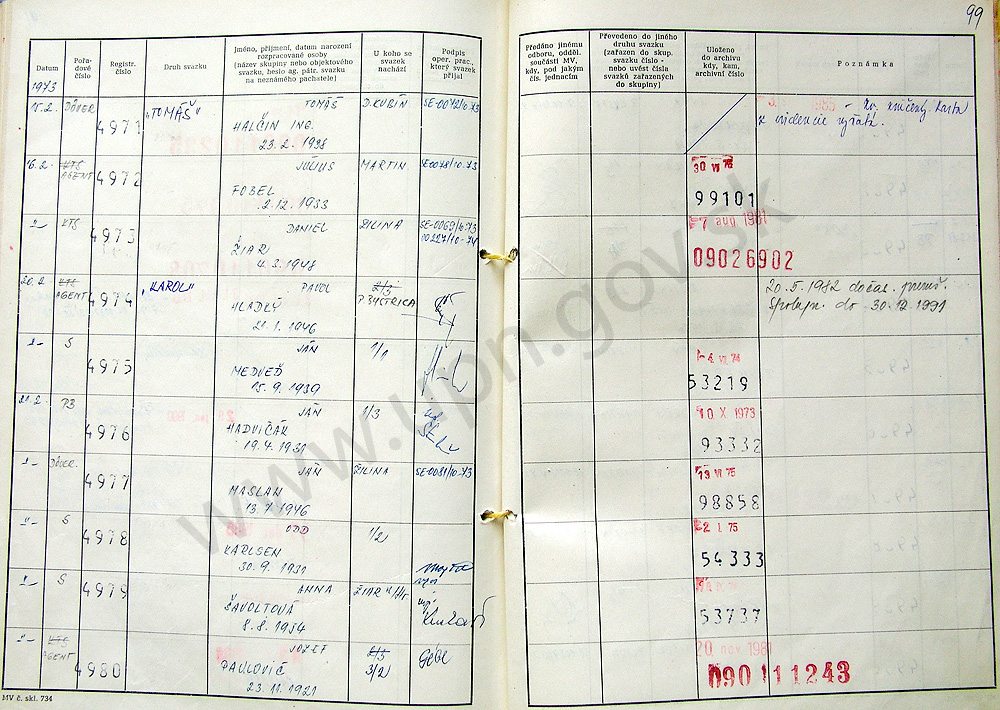 99
Datum
Pořadové číslo
Registr. číslo
Druh svazku
Jméno, příjmení, datum narození rozpracované osoby (název skupiny nebo objektového svazku, heslo ag. pátr. svazku na neznámého pachatele)
U koho se svazek nachází
Podpis oper. prac., který svazek přijal
Předáno jinému odboru, odděl. součásti MV, kdy, pod jakým čís. jednacím
Převedeno do jiného druhu svazku (zařazen do skup. svazku číslo - nebo uvést čísla svazků zařazených do skupiny)
Uloženo do archivu kdy, kam, archivní číslo
Poznámka
1973
15.2. DÔVER. 4971 "TOMÁŠ" TOMÁŠ D.KUBÍN SE-0072/10-73
HALČIN ING.
23.2.1928
16.2. KTS AGENT 4972 JÚLIUS MARTIN SE0078/10-73 30 VI 76
FOBEL 99101
2.12.1933
KTS 4973 DANIEL ŽILINA 7 aug 1981
ŽIAR 09026902
4.3.1948
20.2. KTS AGENT 4974 "KAROL" PAVOL P.BYSTRICA 20.5.1982 dočas. preruš.
HLADKÝ Spoluprc. do 30.12.1991
21.1.1946
S 4975 JÁN 1/1
MEDVEĎ 53219
15.9.1939
21.2. P3 4976 JÁN 1/3 10 X 1973
HADVIČÁK 93332
19.4.1931
DÔVER. 4977 JÁN ŽILINA SE-0081/10-73 19 VI 75
MASLAN 98858
13.7.1946
S 4978 ODD 1/2 2 I 75
KARLSEN 54333
30.9.1931
S 4979 ANNA ŽIAR
ŠAVOLTOVÁ 53737
8.8.1954
KTS AGENT 4980 JOZEF 3/2 20 nov 1981
PAVLOVIČ 090111243
23.11.1921
MV č. skl. 734
www.upn.gov.sk